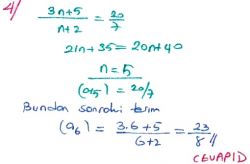 4/
(3n+5)/(n+2) = 20/7
21n+35=20n+40
n=5
(a5) = 20/7
Bundan sonraki terim
(a6) = (3.6+5)/(6+2) = 23/8
(CEVAP D)